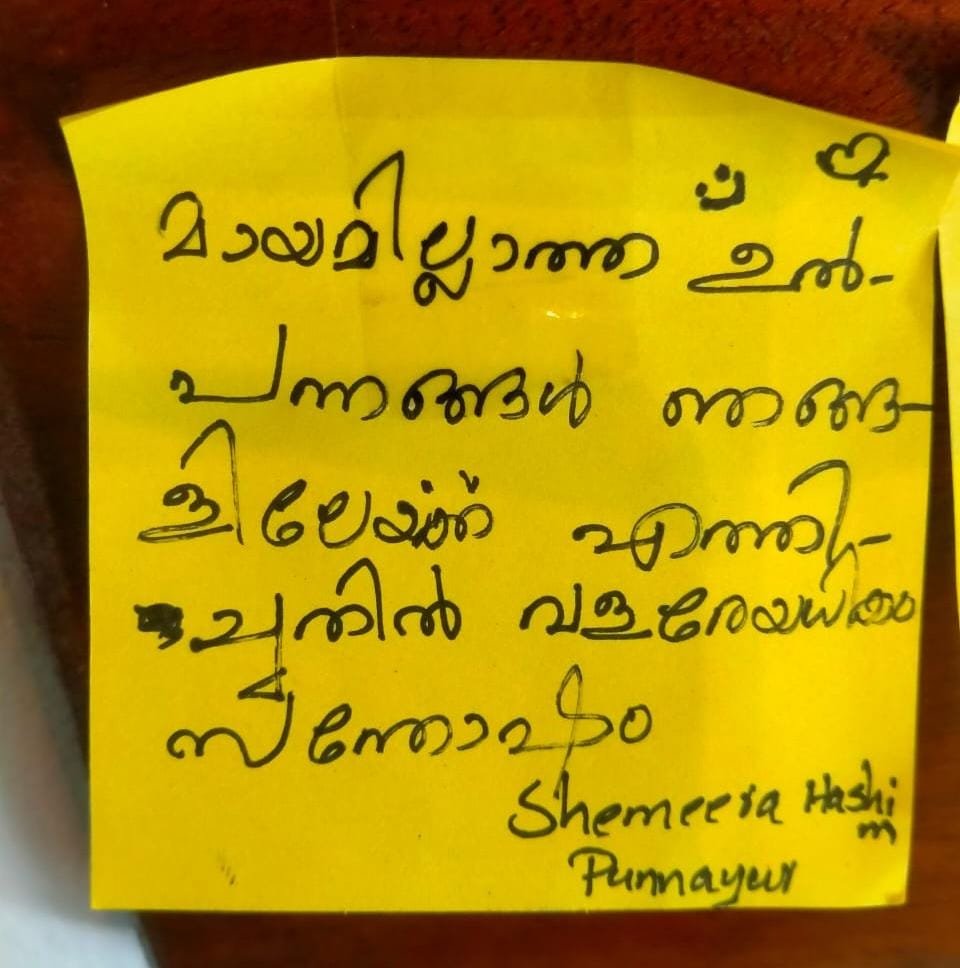 മായമില്ലാത്ത ഉൽ-
പന്നങ്ങൾ ഞങ്ങ-
ളിലേയ്ക്ക് എത്തി-
ച്ചതിൽ വളരേയധികം
സന്തോഷം
Shemeera Hashi
m
Punnayur